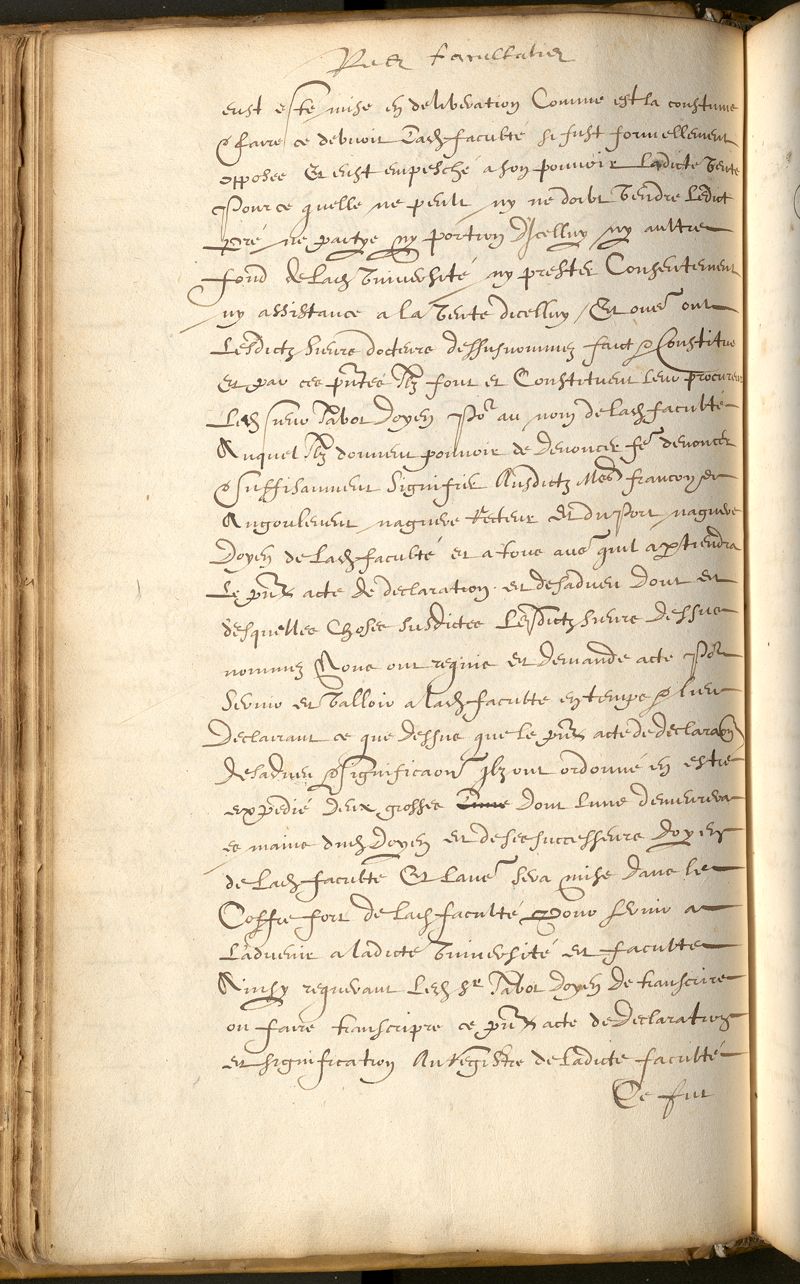 Res facultatis
eust este mise en deliberation Comme est la coustume
& faire ce debvoir Lad faculté si fust formellement
opposee Et eust empesché a son pouvoir Ladicte vente
Pour ce quelle ne peult ny ne doibt vendre Ledict
pré ne partye ny portion Dicelluy ny aultre
fond de Lad université ny prester Consentement
ny assistance a la vente dicelluy / Et oultre ont
Lesdictz sieurs docteurs dessusnommez faict & Constitue
Et par ces pntes Ilz font et Constituent leur procureur
Led sieur Tabot Doyen Po.r au nom de lad faculté
Auquel Ilz donnent pouvoir de Denoncer fe denoncer
& suffisamment signifier Ausdictz francoys
Angoulevent naguere Recteur Et duport naguere
Doyen de Lad faculté et a tous au.es quil aptiendra
Le pnt acte de declaration et desadveu Dont Et
desquelles Choses susdictes Lesdictz sieurs Dessus
nommez Nous ont requis et Demandé acte Po.r
Servir et valloir a lad faculte en temps & lieu
Declairant ce que Dessus que le pnt acte de declaraon
desadveu & significaon Ilz ont ordonné en estre
expedié Deux grosses Dont Lune demeurera
es mains dud Doyen Et de ses successeurs Doyens
de Lad faculté Et Laue sera mise Dans le
Coffre fort de Lad faculté Pour servir a
Ladvenir a ladicte université et faculté
Ainsy requerant Led Sr Tabot Doyen de transcrire
ou faire transcripre ce pnt acte de Declaration
et signification Au Registre de Ladicte faculté
Ce fut